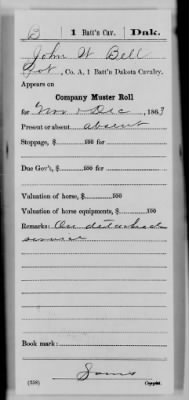 B | 1 Batt'n Cav. | Dak.
John W Bell
Pvt, Co. A, 1 Batt'n Dakota Cavalry.
Appears on
Company Muster Roll
for Nov & Dec, 1863
Present or absent absent
Stoppage, $ 100 for
Due Gov't, $ 100 for
Valuation of horse, $ 100
Valuation of horse equipments, $ 100
Remarks: On detached
service
Book mark:
(358)
Copyist.